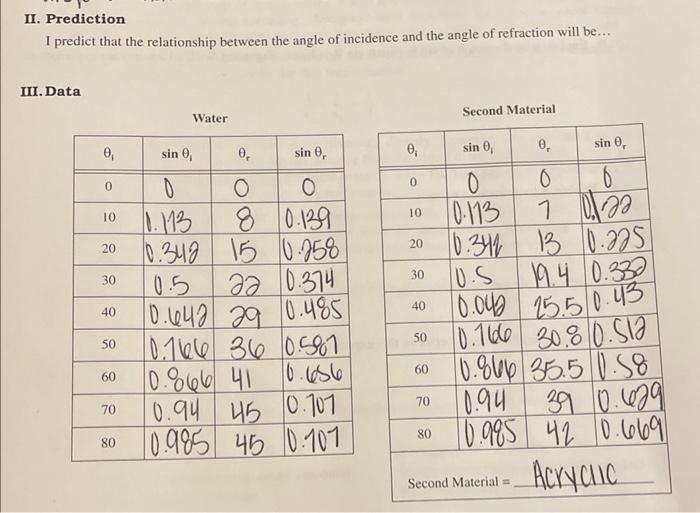 II. Prediction
I predict that the relationship between the angle of incidence and the angle of refraction will be...
III. Data
Water
θi sin θi θr sin θr
0 0 0 0
10 0.173 8 0.139
20 0.342 15 0.258
30 0.5 22 0.374
40 0.642 29 0.485
50 0.766 36 0.587
60 0.866 41 0.656
70 0.94 45 0.707
80 0.985 45 0.707
Second Material
θi sin θi θr sin θr
0 0 0 0
10 0.173 7 0.122
20 0.342 13 0.225
30 0.5 19.4 0.332
40 0.642 25.5 0.43
50 0.766 30.8 0.512
60 0.866 35.5 0.58
70 0.94 39 0.629
80 0.985 42 0.669
Second Material = Acryclic